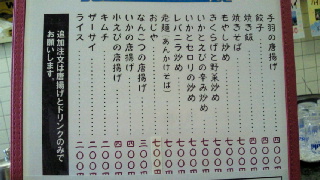 手羽の唐揚げ………四〇〇円
餃子………三〇〇円
焼き飯………四〇〇円
焼きそば………
もやし炒め………
きくらげと野菜炒め………
いかとえびの辛み炒め………
いかとセロリの炒め………
レバニラ炒め………
老麺（あんかけそば）………
おじや………七〇〇円
なんこつの唐揚げ………三〇〇円
いかの唐揚げ………四〇〇円
小えびの唐揚げ………四〇〇円
キムチ………二〇〇円
ザーサイ………二〇〇円
ライス………二〇〇円
追加注文は唐揚げとドリンクのみで、
お願いします。